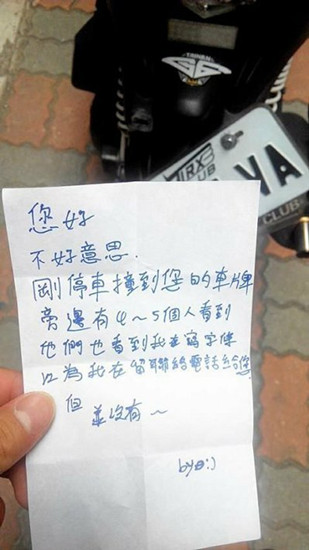 TAIWAN
G6
TJRX
CLUB
VA
CLUB
您好
不好意思.
剛停車撞到您的車牌
旁邊有4~5個人看到
他們也看到我在寫字條
以為我在留聯絡電話給您
但並沒有~
by
:)